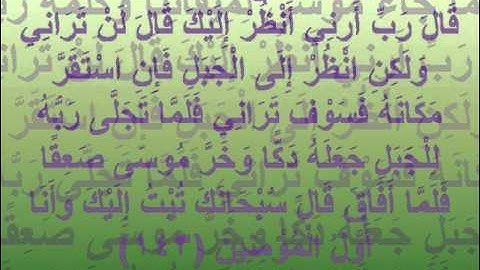 قَالَ رَبِّ أَرِنِي أَنْظُرْ إِلَيْكَ قَالَ لَنْ تَرَانِي
وَلَكِنِ انْظُرْ إِلَى الْجَبَلِ فَإِنِ اسْتَقَرَّ
مَكَانَهُ فَسَوْفَ تَرَانِي فَلَمَّا تَجَلَّى رَبُّهُ
لِلْجَبَلِ جَعَلَهُ دَكًّا وَخَرَّ مُوسَى صَعِقًا
فَلَمَّا أَفَاقَ قَالَ سُبْحَانَكَ تُبْتُ إِلَيْكَ وَأَنَا
أَوَّلُ الْمُؤْمِنِينَ (١٤٣)